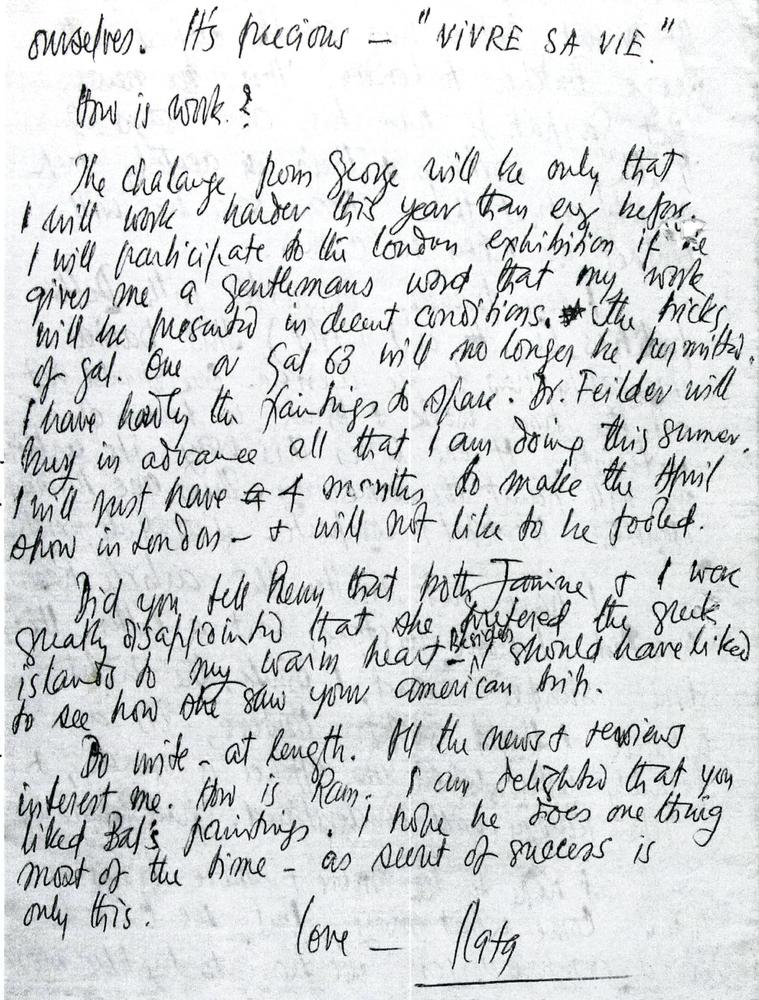 ourselves. It's precious – "VIVRE SA VIE."
How is work?
The chalange from George will be only that
I will work harder this year than ever before.
I will participate to the London exhibition if he
gives me a gentlemans word that my work
will be presented in decent conditions. The tricks
of gal. One or Gal 63 will no longer be permitted.
I have hardly the paintings to spare. Dr. Feilder will
buy in advance all that I am doing this summer.
I will just have 4 months to make the April
show in London – & will not like to be fooled.
Did you tell that both Janine & I were
greatly disappointed that she prefered the greek
islands to my warm heart – Besides I should have liked
to see how she saw your american trip.
Do write – at length. All the news & reviews
interest me. How is Ram. I am delighted that you
liked Bal's paintings. I hope he does one thing
most of the time – as secret of success is
only this.
love – Raza